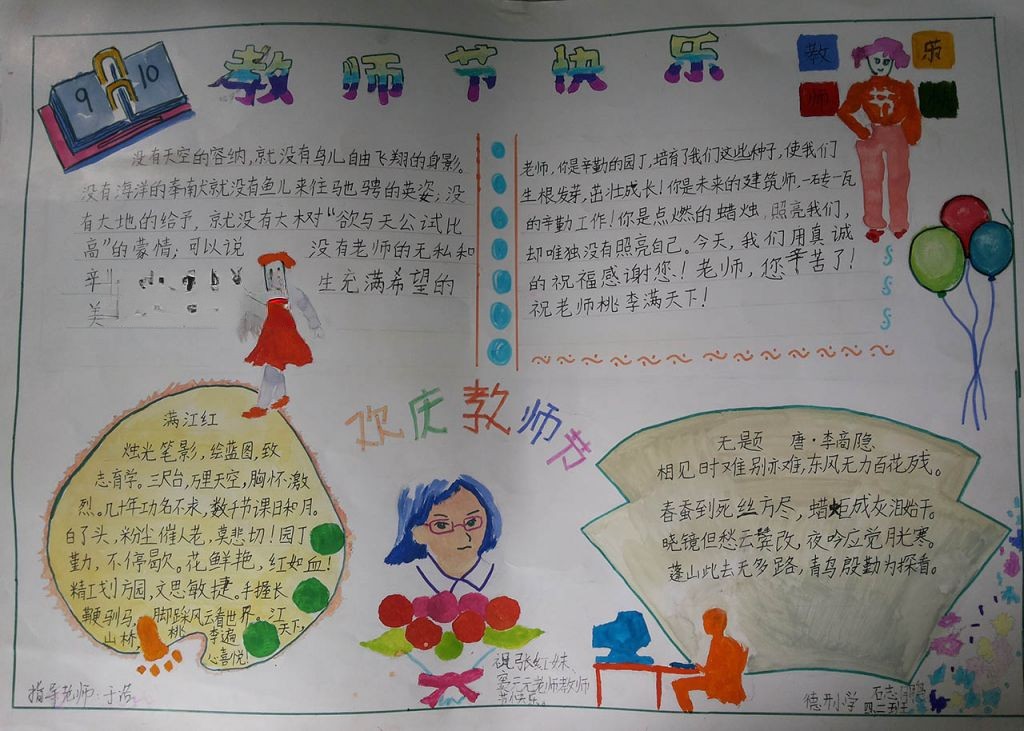 9 10
教师节快乐
教 乐
师 节
没有天空的容纳,就没有鸟儿自由飞翔的身影。
没有海洋的奉献就没有鱼儿来往驰骋的英姿;没
有大地的给予,就没有大树"欲与天公试比
高"的豪情;可以说 没有老师的无私和
辛 生充满希望的
美
老师,你是辛勤的园丁,培育了我们这些种子,使我们
生根发芽,茁壮成长!你是未来的建筑师,一砖一瓦
的辛勤工作!你是点燃的蜡烛,照亮我们,
却唯独没有照亮自己。今天,我们用真诚
的祝福感谢您!老师,您辛苦了!
祝老师桃李满天下!
欢庆教师节
满江红
烛光笔影,绘蓝图,致
志育学。三尺台,万里天空,胸怀激
烈。几十年功名不求,数千节课日和月。
白了头,粉尘催人老,莫悲切!园丁
勤,不停歇。花鲜艳,红如血!
精工划方园,文思敏捷。手握长
鞭驯马,脚踩风云看世界。江
山娇,桃李遍天下,
心喜悦!
无题 唐·李商隐
相见时难别亦难,东风无力百花残。
春蚕到死丝方尽,蜡炬成灰泪始干。
晓镜但愁云鬓改,夜吟应觉月光寒。
蓬山此去无多路,青鸟殷勤为探看。
祝张红妹、
三元老师教师
节快乐。
指导老师:于洁
德开小学
四、二班